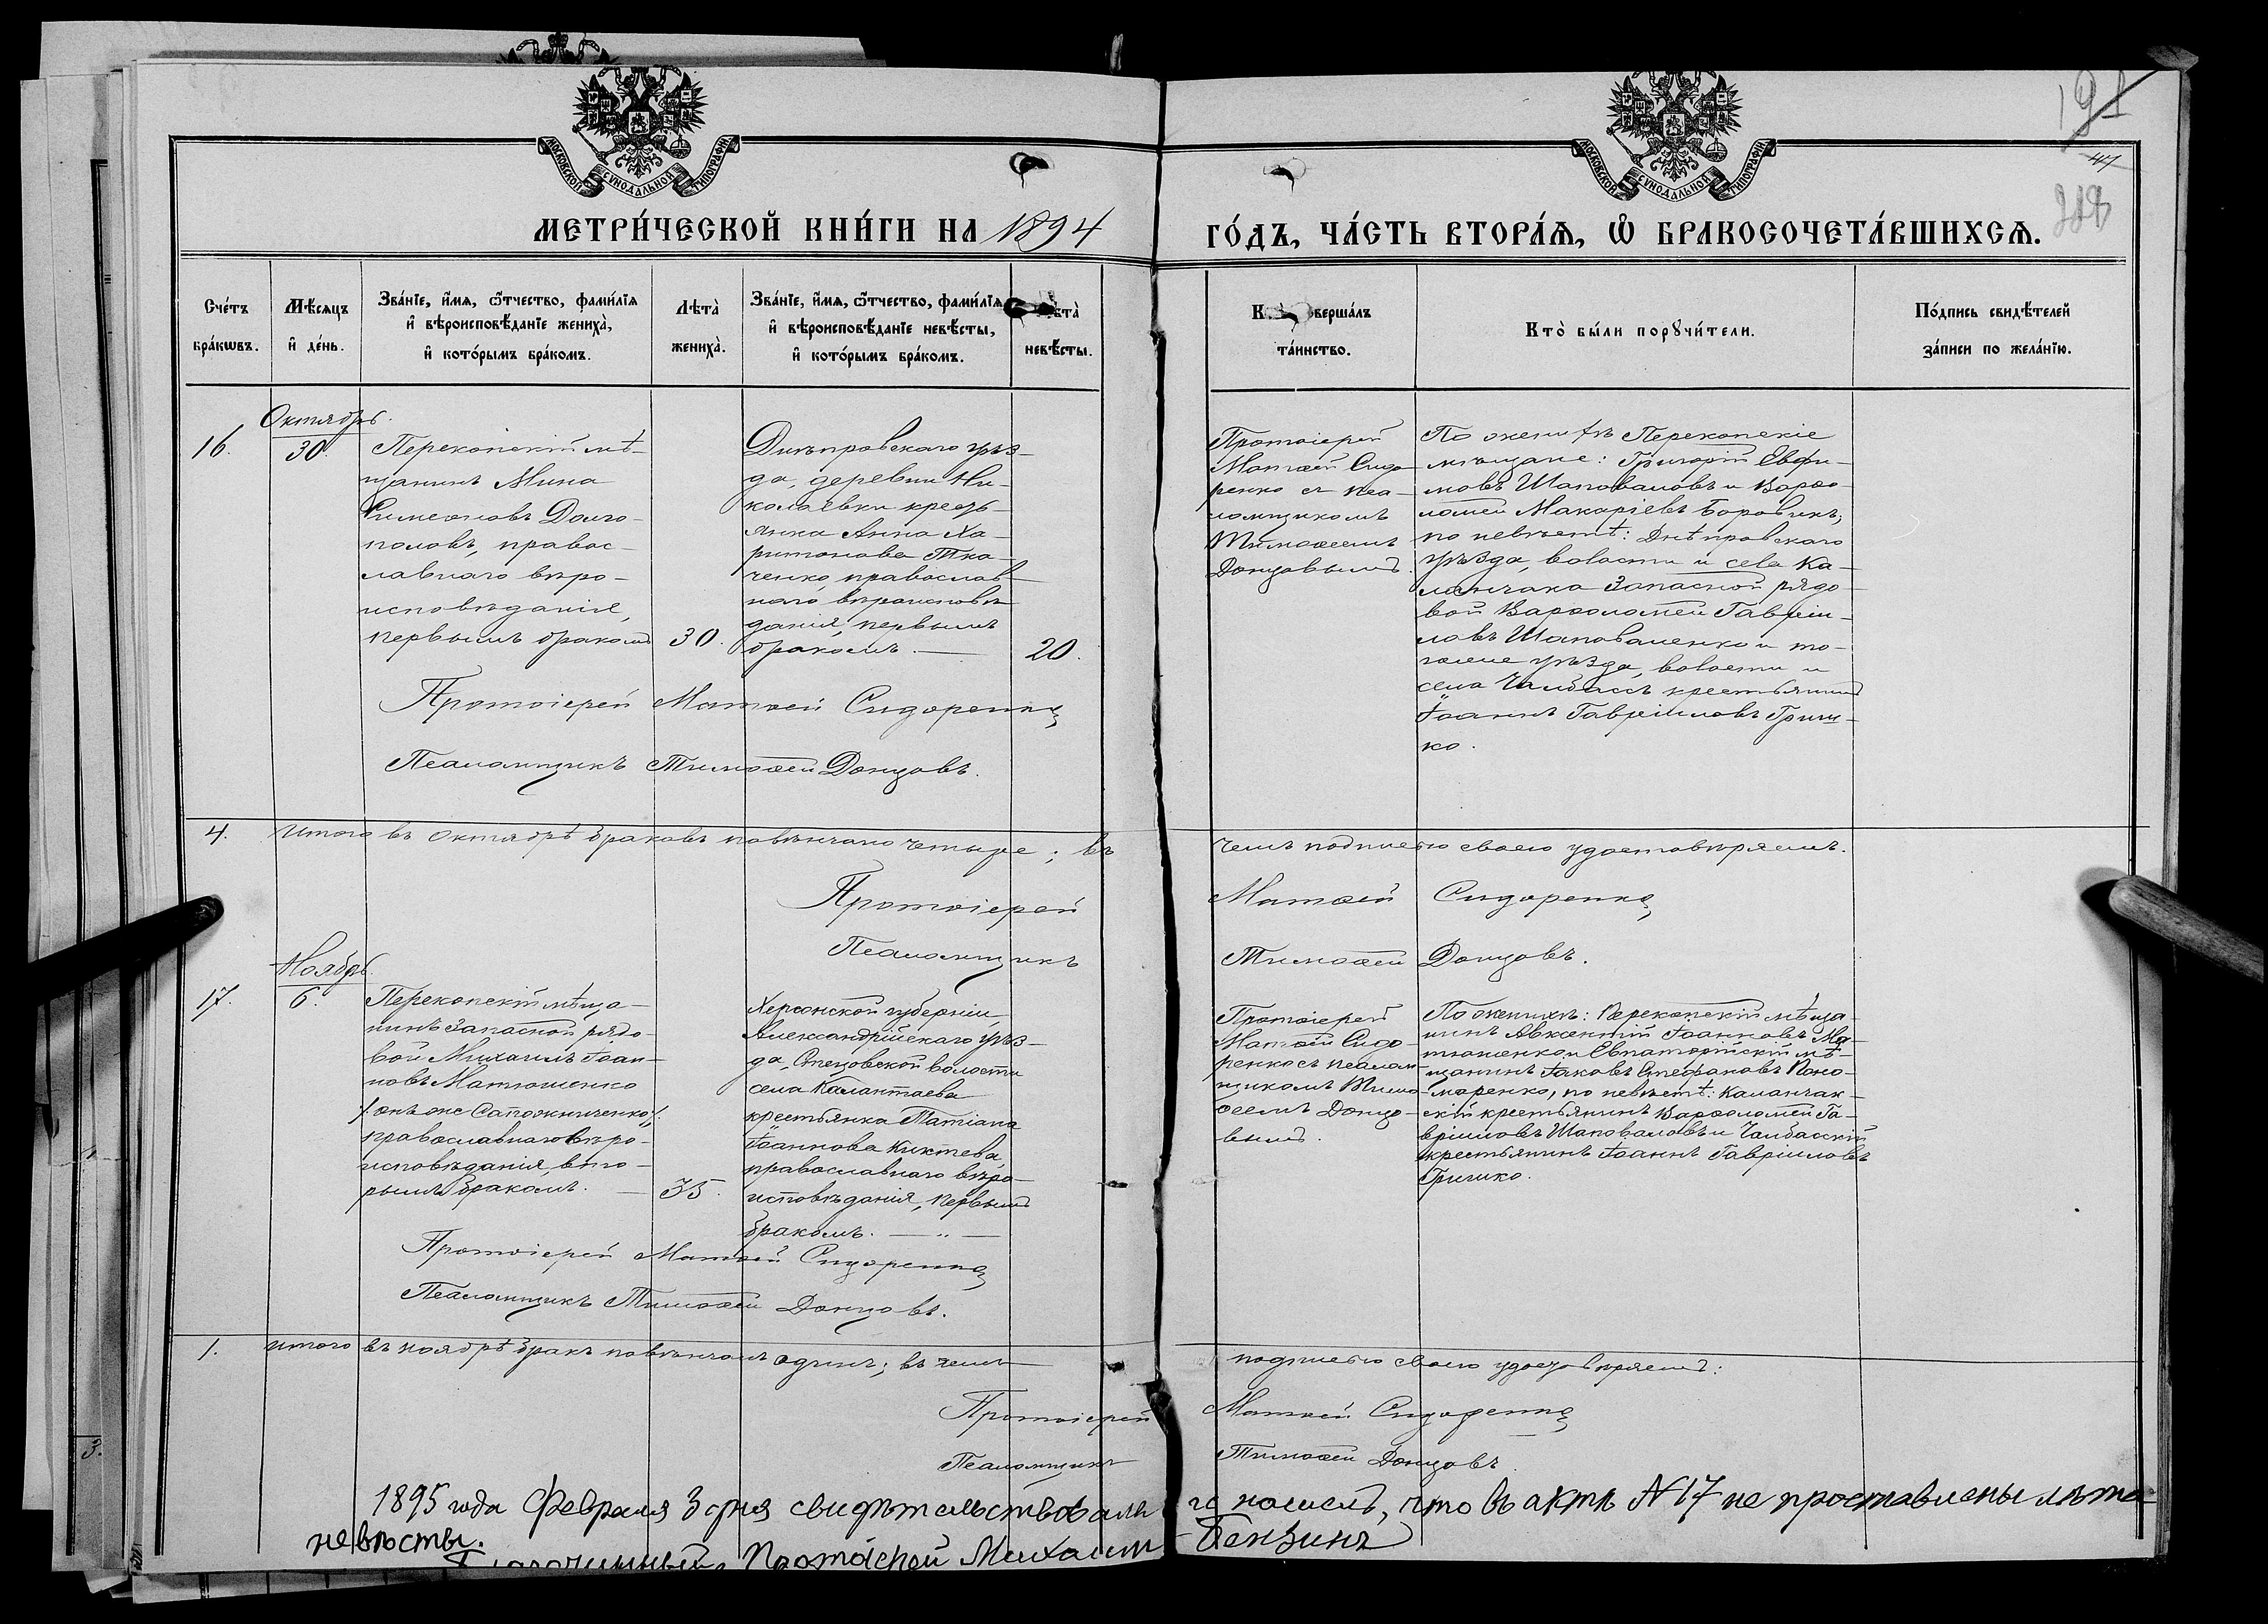 МОСКОВСКОЙ СѴНОДАЛЬНОЙ ТИПОГРАФІИ
МОСКОВСКОЙ СѴНОДАЛЬНОЙ ТИПОГРАФІИ
191
41
МЕТРИ́ЧЕСКОЙ КНИ́ГИ НА 1894
ГО́ДЪ, ЧА́СТЬ ВТОРА́Ѧ, Ѡ҆ БРАКОСОЧЕТА́ВШИХСѦ.
Сче́тъ
бра́кѡвъ.
Мѣ́сѧцъ
и҆ де́нь.
Зва́нїе, и҆́мѧ, ѻ҆́тчество, фами́лїѧ
и҆ вѣроисповѣ́данїе жениха̀,
и҆ кото́рымъ бра́комъ.
Лѣта̀
жениха̀.
Зва́нїе, и҆́мѧ, ѻ҆́тчество, фами́лїѧ
и҆ вѣроисповѣ́данїе невѣ́сты,
и҆ кото́рымъ бра́комъ.
невѣ́сты.
та́инство.
Кто̀ бы́ли порꙋчи́тели.
По́дпись свидѣ́телей
за́писи по жела́нїю.
16.
Октябрь.
30.
Перекопскій мѣ-
щанинъ Мина
Симеоновъ Долго-
половъ, правос-
лавнаго вѣро-
исповѣданія,
первымъ бракомъ
30.
Днѣпровскаго уѣз-
да, деревни Ни-
колаевки кресть-
янка Анна Ха-
ритонова Тка-
ченко, православ-
наго вѣроисповѣ-
данія, первымъ
бракомъ. —
20.
Протоіерей
Матѳей Сидо-
ренко съ пса-
ломщикомъ
Тимоѳеемъ
Донцовымъ.
По женихѣ Перекопскіе
мѣщане: Григорій Евфи-
мовъ Шаповаловъ и Варѳо-
ломей Макаріевъ Боровикъ;
по невѣстѣ: Днѣпровскаго
уѣзда, волости и села Ка-
ланчака запасной рядо-
вой Варѳоломей Гавріи-
ловъ Шаповаленко и то-
гоже уѣзда, волости и
села Чалбассъ крестьянинъ
Іоаннъ Гавріиловъ Гриш-
ко.
Протоіерей Матѳей Сидоренко
Псаломщикъ Тимоѳей Донцовъ.
4. Итого въ Октябрѣ браковъ повѣнчано четыре; въ
чемъ подписью своею удостовѣряемъ.
Протоіерей Матѳей Сидоренко
Псаломщикъ Тимоѳей Донцовъ.
Ноябрь
17.
6.
Перекопскій мѣща-
нинъ запасной рядо-
вой Михаилъ Іоан-
новъ Матюшенко
/: онъ же Сапожниченко :/
православнаго вѣро-
исповѣданія, вто-
рымъ бракомъ. —
35.
Херсонской губерніи,
Александрійскаго уѣз-
да, Стецовской волости
села Калантаева
крестьянка Татіана
Іоаннова Киктева,
православнаго вѣро-
исповѣданія, первымъ
бракомъ. — " —
Протоіерей
Матѳей Сидо-
ренко съ псалом-
щикомъ Тимо-
ѳеемъ Донцо-
вымъ.
По женихѣ: Перекопскій мѣща-
нинъ Авксентій Іоанновъ Ма-
тюшенко и Евпаторійскій мѣ-
щанинъ Іаковъ Стефановъ Поно-
маренко, по невѣстѣ: Каланчак-
скій крестьянинъ Варѳоломей Га-
вріиловъ Шаповаловъ и Чалбасскій
крестьянинъ Іоаннъ Гавріиловъ
Гришко.
Протоіерей Матѳей Сидоренко
Псаломщикъ Тимоѳей Донцовъ.
1. Итого въ ноябрѣ бракъ повѣнчанъ одинъ; въ чемъ
подписью своею удостовѣряемъ:
Протоіерей Матѳей Сидоренко
Псаломщикъ Тимоѳей Донцовъ.
1895 года Февраля 3 дня свидѣтельствовалъ и нашелъ, что въ актѣ №17 не проставлены лѣта
невѣсты.
Благочинный, Протоіерей Михаилъ
3.